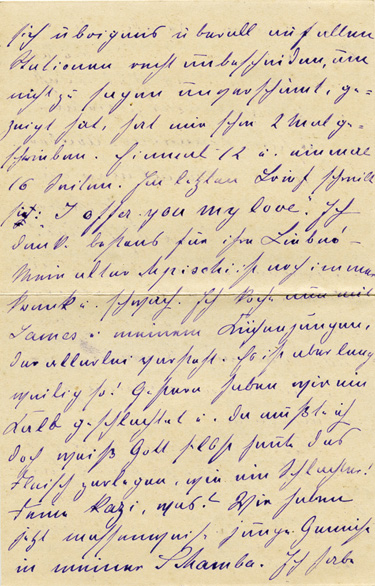 sich übrigens überall auf allen
Stationen recht unbescheiden, um
nicht zu sagen unverschämt, ge-
zeigt hat, hat mir schon 2 mal ge-
schrieben. Einmal 12 u. einmal
16 Seiten. Im letzten Brief schreibt
sie: "I offer you my love". Ich
danke bestens für ihre Liebe! -
Mein alter Mpischi ist noch immer
krank u. schwach. Ich koche nun mit
James u. meinem Küchenjungen,
der allerlei versteht. Es ist aber lang
weilig so! Gestern haben wir ein
Kalb geschlachtet u. da mußte ich
doch weiß Gott selbst heute das
Fleisch zerlegen, wie ein Schlachter!
Feine Kazi, was? Wir haben
jetzt massenweise junge Gemüse
in meiner Shamba. Ich habe